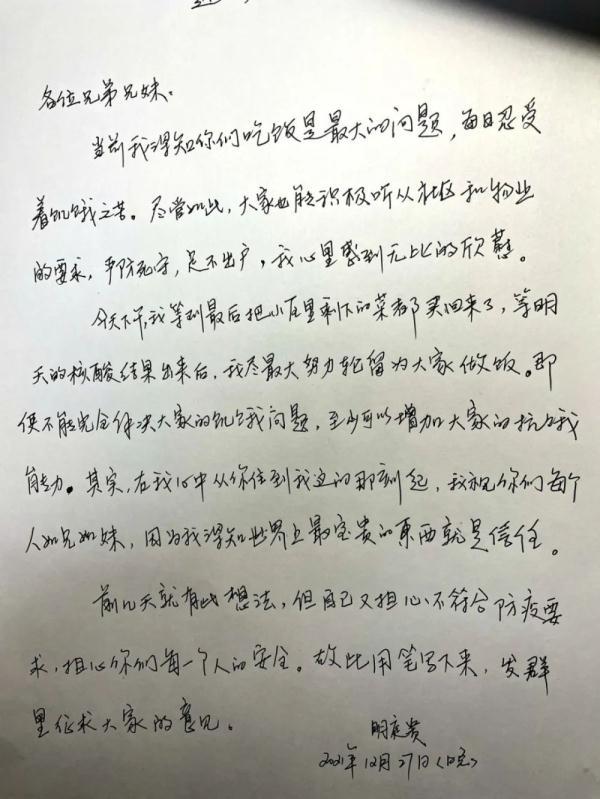 各位兄弟兄妹：
当前我得知你们吃饭是最大的问题，每日忍受
着饥饿之苦。尽管如此，大家也能积极听从社区和物业
的要求，严防死守，足不出户，我心里感到无比的欣慰。
今天下午我等到最后把小店里剩下的菜都买回来了，等明
天的核酸结果出来后，我尽最大努力轮留为大家做饭。即
便不能完全解决大家的饥饿问题，至少可以增加大家的抗饿
能力。其实，在我心中从你住到我这的那刻起，我视你们每个
人如兄如妹，因为我得知世界上最宝贵的东西就是信任。
前几天就有此想法，但自己又担心不符合防疫要
求，担心你们每一个人的安全。故此用笔写下来，发群
里征求大家的意见。
明庭贵
2021年12月27日（晚）